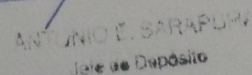 ANTONIO E. SARAPURA
Jefe de Depósito